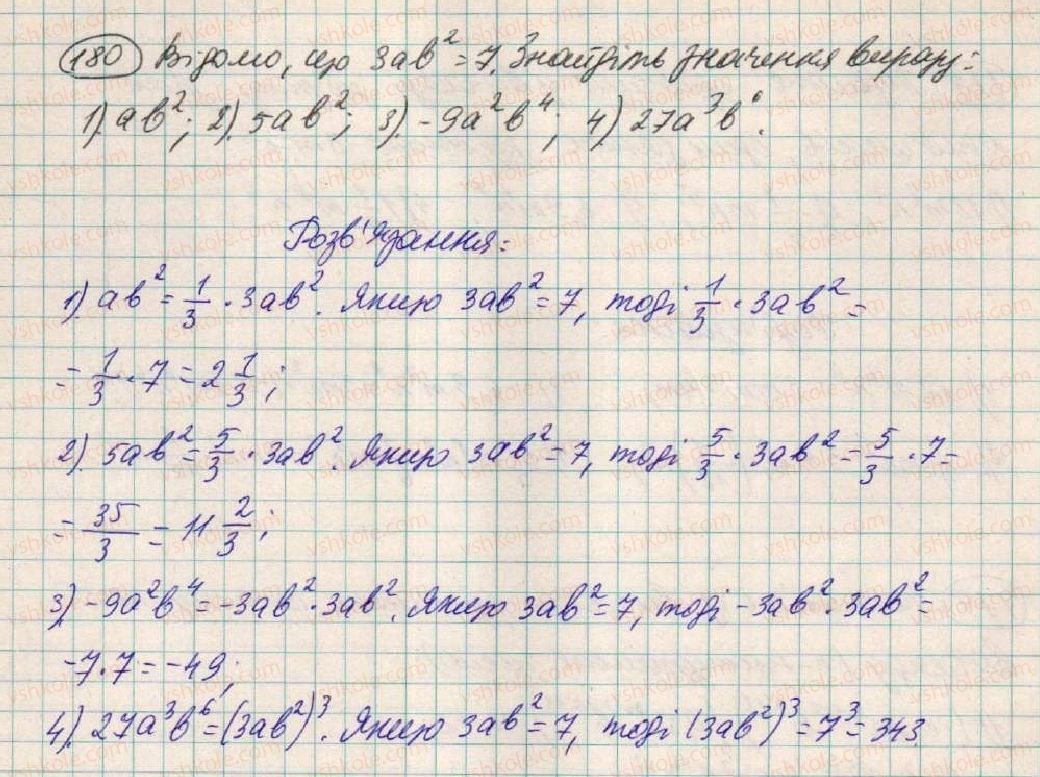 180 Відомо, що 3ab² = 7. Знайдіть значення виразу:
1). ab²; 2). 5ab²; 3). -9a²b⁴; 4) 27a³b⁶.
Розв'язання:
1) ab² = 1/3 · 3ab². Якщо 3ab² = 7, тоді 1/3 · 3ab² =
= 1/3 · 7 = 2 1/3;
2) 5ab² = 5/3 · 3ab². Якщо 3ab² = 7, тоді 5/3 · 3ab² = 5/3 · 7 =
= 35/3 = 11 2/3;
3). -9a²b⁴ = -3ab² · 3ab². Якщо 3ab² = 7, тоді -3ab² · 3ab² =
-7 · 7 = -49;
4). 27a³b⁶ = (3ab²)³. Якщо 3ab² = 7, тоді (3ab²)³ = 7³ = 343.
vshkole.com